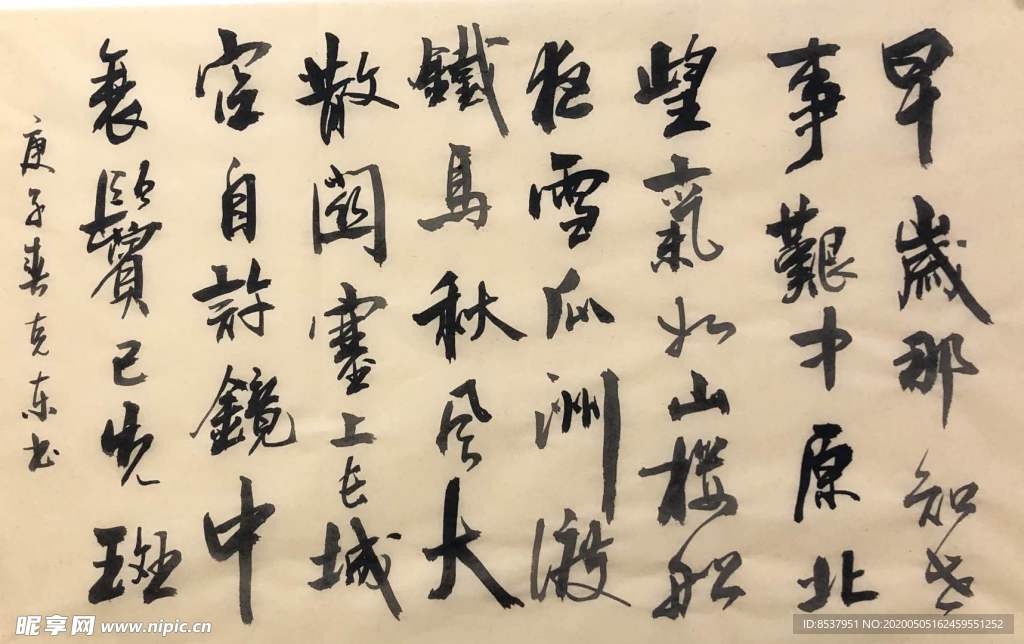 早歲那知世
事艱中原北
望氣如山樓船
夜雪瓜洲渡
鐵馬秋风大
散關塞上长城
空自許鏡中
衰鬢已先斑
庚子春克东书
昵享网 www.nipic.cn
ID:8537951 NO:20200505162459551252